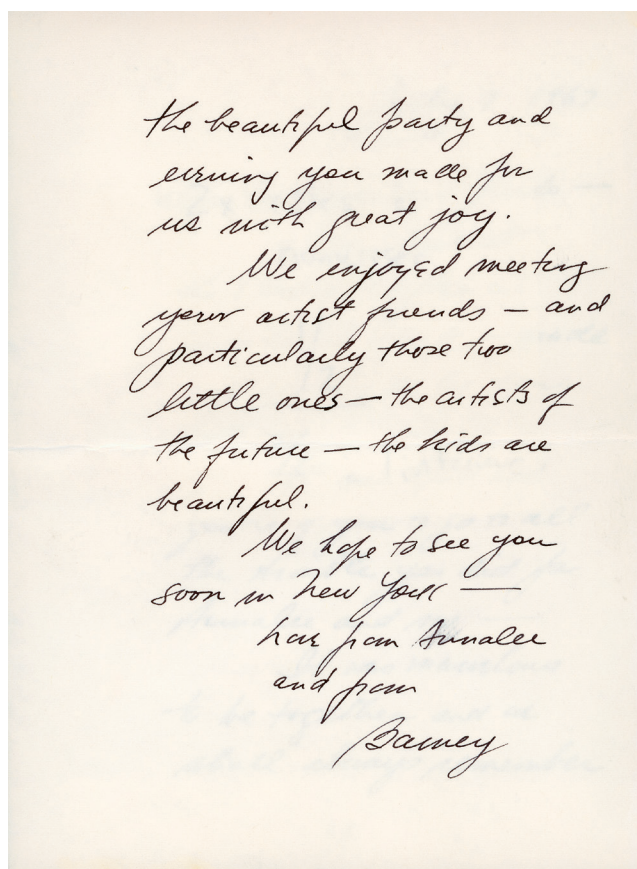 the beautiful party and
evening you made for
us with great joy.
We enjoyed meeting
your artist friends – and
particularly those two
little ones – the artists of
the future – the kids are
beautiful.
We hope to see you
soon in New York –
love from Annalee
and from
Barney